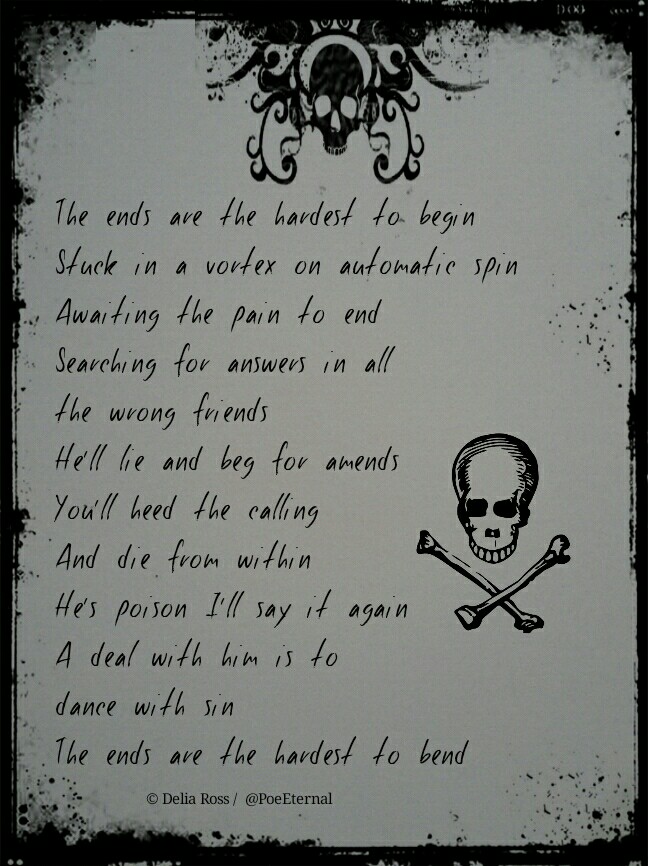 The ends are the hardest to begin
Stuck in a vortex on automatic spin
Awaiting the pain to end
Searching for answers in all
the wrong friends
He'll lie and beg for amends
You'll heed the calling
And die from within
He's poison I'll say it again
A deal with him is to
dance with sin
The ends are the hardest to bend
© Delia Ross / @PoeEternal